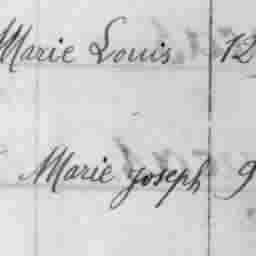 Marie Louis 12
Marie Joseph 9